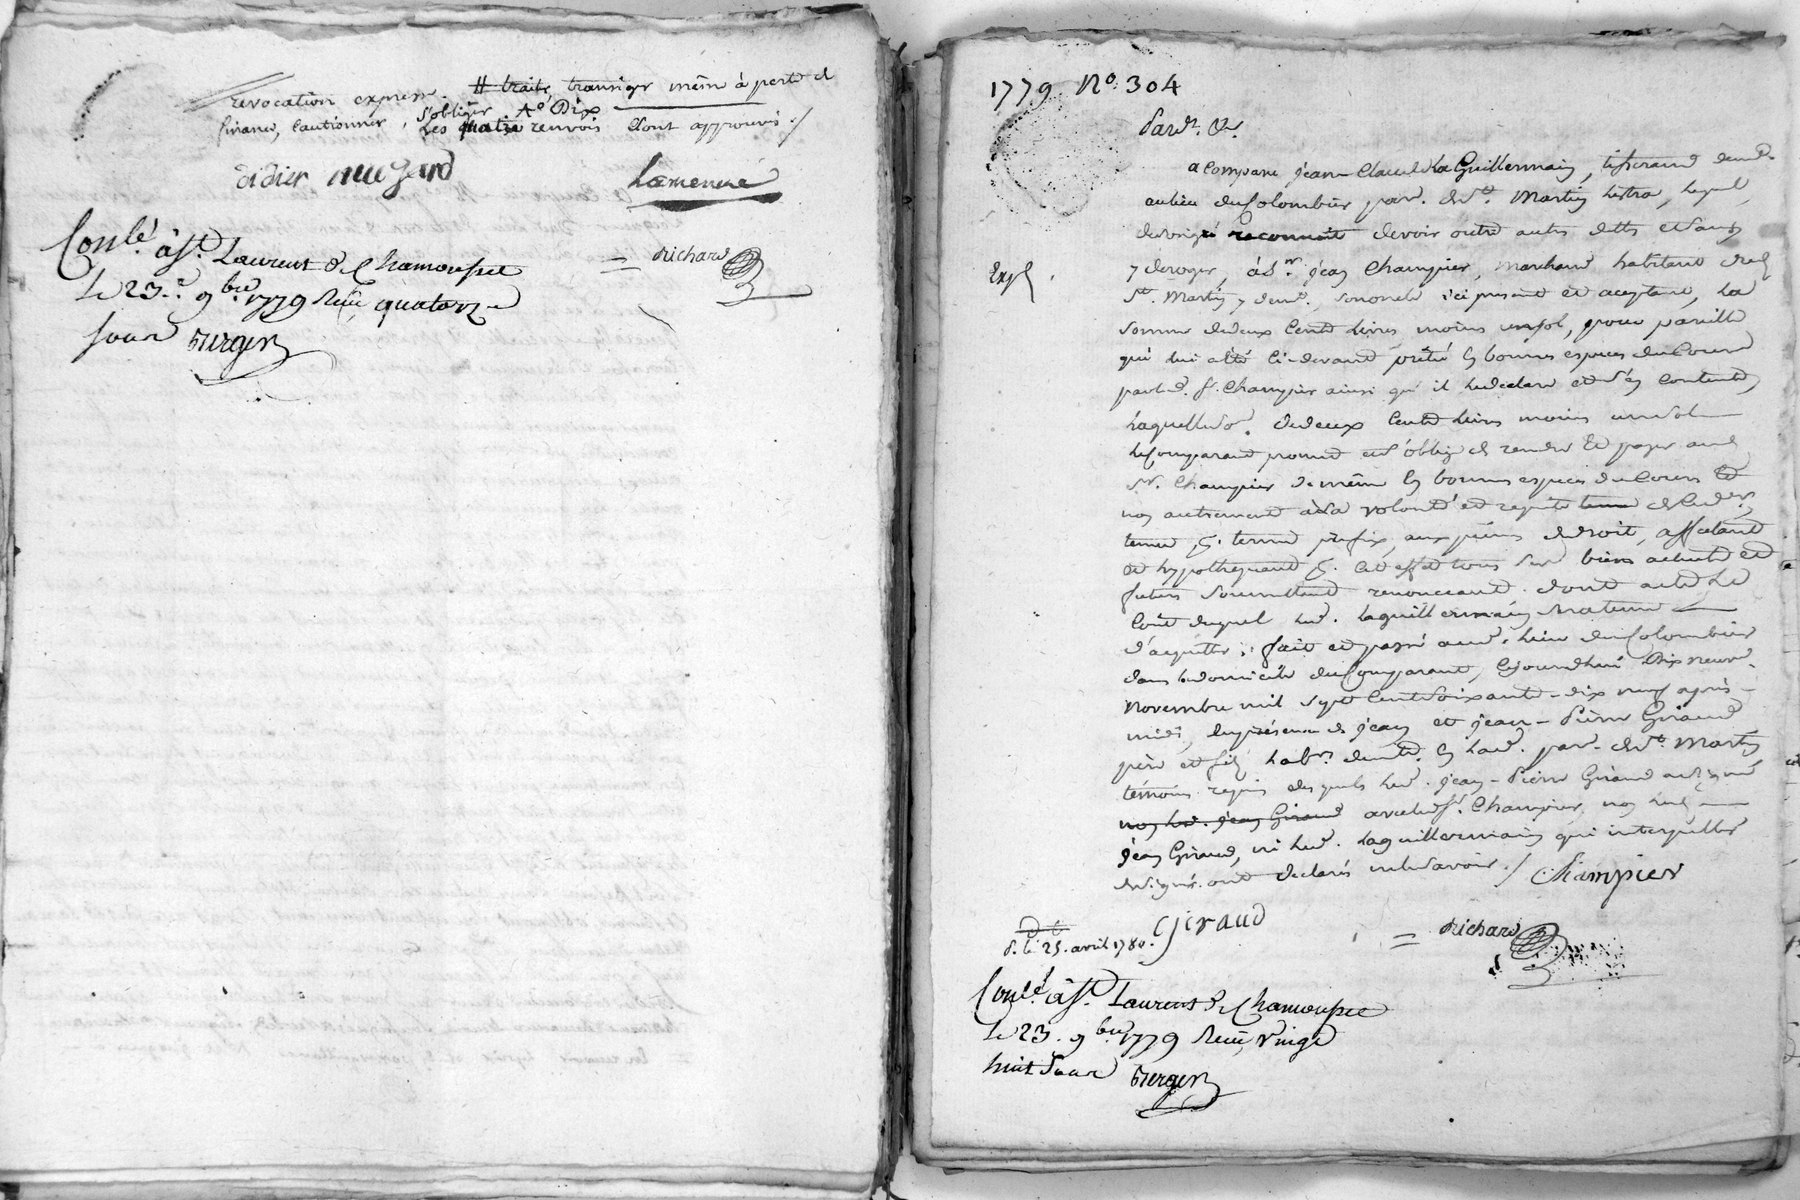 revocation expresse. # traite, transiger même à perte de
finance, cautionner, s'obliger. A° Dix
Les quatre renvois sont approuvés ./
didier mugard
Lamenné
Conlé à St. Laurent de Chamousset
= Richard
le 23. 9bre 1779 Reçu quatorze
sous Berger
1779 N° 304
Pardt. &c.
a comparu jean Claude LaGuillermain, tisserand demt.
au lieu du Colombier par. de St. Martin Lestra, lequel
de son gré reconnoit devoir outre autres dettes et sans
Exp.
y deroger, à Sr. jean Champier, marchand habitant dud.
St. Martin y demt., son oncle ici present et aceptant, La
somme de deux Cents Livres moins un sol, pour pareille
qui lui a été ci-devant prêté en bonnes especes du Cours
part d. Sr. Champier ainsi qu'il Le declare et s'en contente,
Laquelle so. de deux Cents Livres moins un sol
Le Comparant promet et s'oblige de rendre et payer aud.
Sr. Champier de même en bonnes especes du Cours et
non autrement à sa volonté et requete
terme p. terme prefix, aux peines de droit, affectant
et hypothequant p. cet effet tous ses biens actuels et
futurs soumettant renonceant. dont acte Le
Cout duquel led. Laguillermain sera tenu
d'acquitter; fait et passé aud. Lieu du Colombier
dans Le domicile du Comparant, Cejourdhui Dix neuf
Novembre mil sept Cent soixante-dix neuf après-
midi, en présence de jean et jean-Pierre Giraud
père et fils hab. demt. en lad. par. de St. Martin
témoins requis desquels led. jean-Pierre Giraud a signé
non led. jean Giraud avec led. Sr. Champier, non led.
jean Giraud, ni led. Laguillermain qui interpellés
de signer ont declarés ne le savoir ./ Champier
Giraud
d. le 25. avril 1780.
= Richard
Conlé à St. Laurent de Chamousset
le 23. 9bre 1779 Reçu Vingt
huit Sous Berger